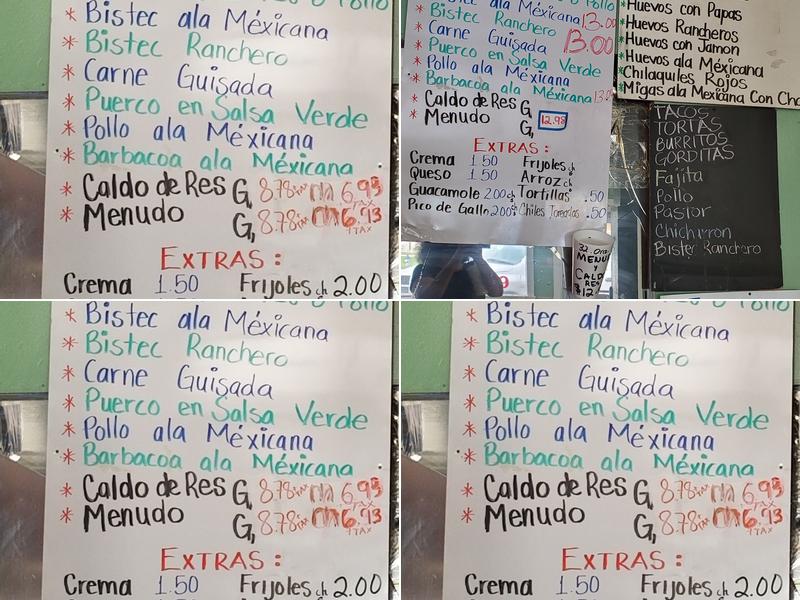 * Bistec ala Méxicana
* Bistec Ranchero
* Carne Guisada
* Puerco en Salsa Verde
* Pollo ala Méxicana
* Barbacoa ala Méxicana
* Caldo de Res G, 8.78 6.93
* Menudo G, 8.78 6.93
TAX
EXTRAS:
Crema 1.50 Frijoles ch 2.00
ala Méxicana 13.00
* Bistec Ranchero
* Carne Guisada 13.00
* Puerco en Salsa Verde
* Pollo ala Méxicana
* Barbacoa ala Méxicana 13.0
* Caldo de Res G,
* Menudo G, 12.98
EXTRAS:
Crema 1.50 Frijoles ch
Queso 1.50 Arroz ch
Guacamole 2.00 ch Tortillas .50
Pico de Gallo 2.00 Chiles Toreados .50
* Huevos con Papas
* Huevos Rancheros
* Huevos con Jamon
* Huevos ala Méxicana
* Chilaquiles Rojos
* Migas ala Mexicana Con Cho
TACOS
TORTAS
BURRITOS
GORDITAS
Fajita
Pollo
Pastor
Chicharron
Bistec Ranchero
32. Onz
MENUDO
Y
CALDO
RES
$12
* Bistec ala Méxicana
* Bistec Ranchero
* Carne Guisada
* Puerco en Salsa Verde
* Pollo ala Méxicana
* Barbacoa ala Méxicana
* Caldo de Res G, 8.78 6.93
* Menudo G, 8.78 6.93
TAX
EXTRAS:
Crema 1.50 Frijoles ch 2.00
* Bistec ala Méxicana
* Bistec Ranchero
* Carne Guisada
* Puerco en Salsa Verde
* Pollo ala Méxicana
* Barbacoa ala Méxicana
* Caldo de Res G, 8.78 6.93
* Menudo G, 8.78 6.93
TAX
EXTRAS:
Crema 1.50 Frijoles ch 2.00